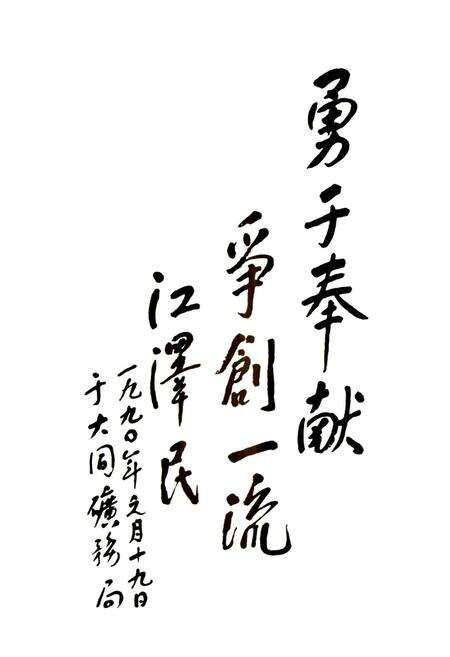 勇于奉献
爭創一流
江澤民
一九九〇年元月十九日
于大同礦務局